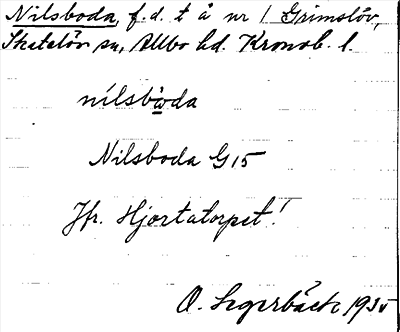 Nilsboda, f.d. t å nr 1 Grimslöv,
Skatelöv sn, Allbo hd. Kronob. l.
nilsbωda
Nilsboda G 15
Jfr. Hjortatorpet!
O. Segerbäck 1935